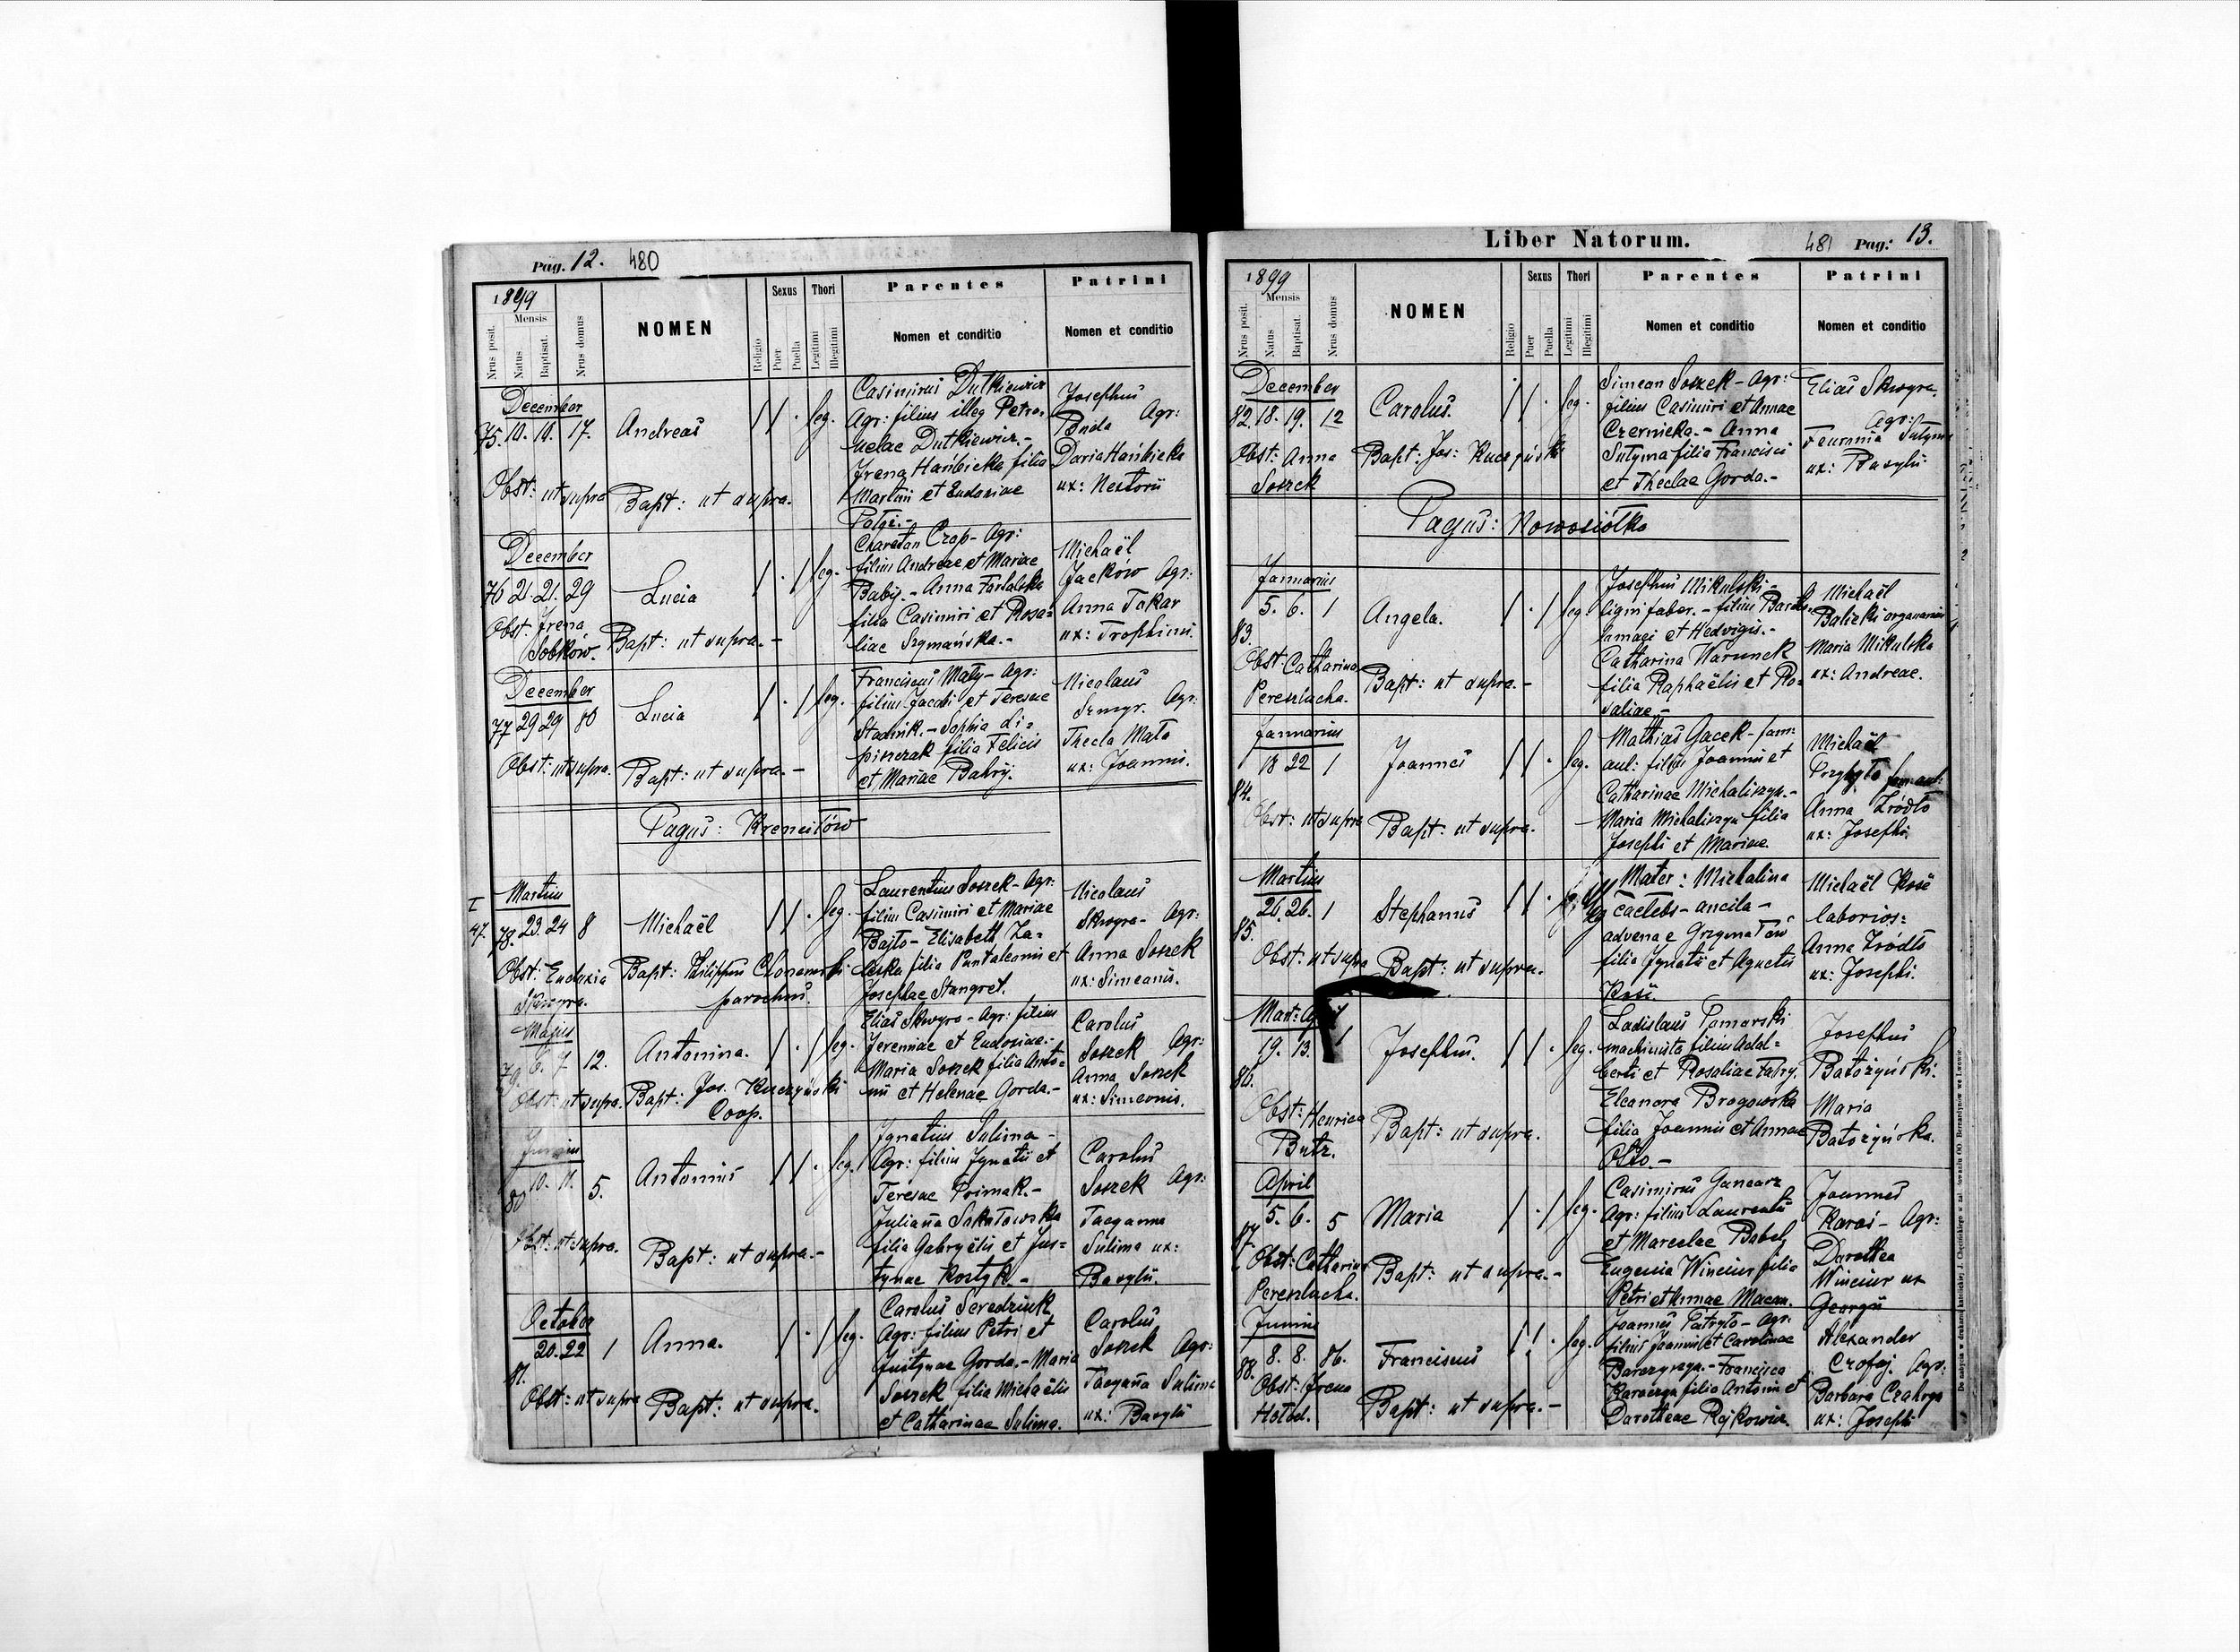 Pag. 12. 480
1899
Nrus posit.
Mensis
Natus
Baptisat.
Nrus domus
NOMEN
Religio
Sexus
Puer
Puella
Thori
Legitimi
Illegitimi
Parentes
Nomen et conditio
Patrini
Nomen et conditio
December
75. 10. 10. 17.
Andreas
leg.
Obst: ut supra
Bapt: ut supra.
Casimirus Dutkiewicz
Agr: filius illeg Petro-
nelae Dutkiewicz.-
Irena Hańbicka filia
Martini et Eudoxiae
Josephus
Agr:
Daria Hańbicka
ux: Nestorii
December
76 21. 21. 29
Lucia
leg.
Obst. Irena
Sobków.
Bapt: ut supra.-
Chareton Czop- Agr:
filius Andreae et Mariae
Babij.- Anna
filia Casimiri et Rosa-
liae Szymańska.-
Michaël
Jacków Agr:
Anna Tokar
ux: Trophimi.
December
77 29 29 80
Lucia
leg.
Obst: ut supra.
Bapt: ut supra.-
Franciscus Maty- Agr:
filius Jacobi et Teresae
Stadnik.- Sophia Li-
pinczak filia Felicis
et Mariae Bahrij.
Nicolaus
Szmyr. Agr:
Thecla Mato
ux: Joannis.
Pagus: Krenciłów
Martius
I
47. 78. 23. 24 8
Michaël
leg.
Obst: Eudoxia
Skwyra.
Bapt: Philippus
parochus.
Laurentius Soszek- Agr:
filius Casimiri et Mariae
Bajto- Elisabeth Za-
leska filia Pantaleonis et
Josephae Stangret.
Nicolaus
Skwyra- Agr:
Anna Soszek
ux: Simeonis.
Majus
79. 6. 7 12.
Antonina.
leg.
Obst: ut supra.
Bapt: Jos. Kuczyński
Coop.
Elias Skwyra- Agr: filius
Jeremiae et Eudoxiae.-
Maria Soszek filia Anto-
nii et Helenae Gorda.-
Carolus
Soszek Agr:
Anna Soszek
ux: Simeonis.
Junius
80 10. 11. 5.
Antonius
leg.
Obst: ut supra.
Bapt: ut supra.-
Ignatius Sulima-
Agr: filius Ignatii et
Teresae Primak.-
Juliana Sokołowska
filia Gabryëlis et Jus-
tynae Kostyk.-
Carolus
Soszek Agr:
Tacyanna
Sulima ux:
Basylii.
October
81. 20. 22 1
Anna.
leg.
Obst: ut supra
Bapt: ut supra.
Carolus Seredziuk
Agr: filius Petri et
Justynae Gorda.- Maria
Soszek filia Michaëlis
et Catharinae Sulima.
Carolus
Soszek Agr:
Tacyana Sulima
ux: Basylii
Liber Natorum.
481 Pag: 13.
1899
Nrus posit.
Mensis
Natus
Baptisat.
Nrus domus
NOMEN
Religio
Sexus
Puer
Puella
Thori
Legitimi
Illegitimi
Parentes
Nomen et conditio
Patrini
Nomen et conditio
December
82. 18. 19. 12
Carolus.
leg.
Obst: Anna
Soszek
Bapt: Jos: Kuczyński
Simeon Soszek- Agr:
filius Casimiri et Annae
Czernicka.- Anna
Sutyma filia Francisci
et Theclae Gorda.-
Elias Skwyra.
Agr:
ux: Basylii
Pagus: Nowosiółka
Januarius
83. 5. 6. 1
Angela.
leg.
Obst: Catharina
Pereszlucha.
Bapt: ut supra.-
Josephus Mikulski-
ligni faber.- filius Bartho-
lomaei et Hedvigis.-
Catharina Warunek
filia Raphaëlis et Ro-
saliae.-
Michaël
Balicki organarius
Maria Mikulska
ux: Andreae.
Januarius
84. 18 22 1
Joannes
leg.
Obst: ut supra
Bapt: ut supra.
Mathias Gacek- fam:
aul: filius Joannis et
Catharinae Michaliszyn.-
Maria Michaliszyn filia
Josephi et Mariae
Michaël
Przybyło fam: aul:
Anna Źródło
ux: Josephi.
Martius
85. 26. 26. 1
Stephanus
Obst: ut supra
Bapt: ut supra.
Mater: Michalina
caelebs- ancila-
advenae Grzymałów
filia Ignatii et Agnetis
Michaël
laborios:
Anna Źródło
ux: Josephi.
Mart: April
86. 19. 13. 1
Josephus.
leg.
Obst: Henrica
Butz.
Bapt: ut supra.
Ladislaus Pomorski
machinista filius Adal-
berti et Rosaliae
Eleonora Brogowska
filia Joannis et Annae
Josephus
Batożyński.
Maria
Batożyńska.
April
87. 5. 6. 5
Maria
leg.
Obst: Catharina
Pereszlucha.
Bapt: ut supra.-
Casimirus Gancarz
Agr: filius Laurentii
et Marcelae Babel,
Eugenia Winciur filia
Petri et Annae
Joannes
Karaś- Agr:
Dorothea
Winciur ux
Georgii
Junius
88. 8. 8. 86.
Franciscus
leg.
Obst: Irena
Hołod.
Bapt: ut supra.-
Joannes Patryło- Agr:
filius Joannis et Carolinae
Francisca
filia Antonii et
Dorotheae Rajkowicz.
Alexander
Czofij Agr:
Barbara
ux: Josephi